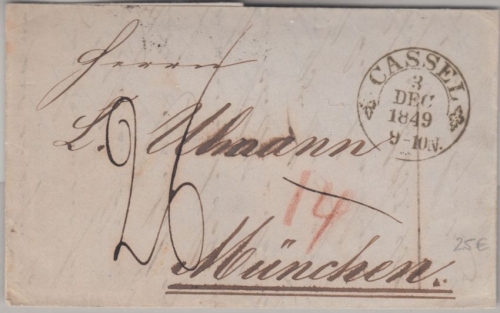 CASSEL
3
DEC
1849
9-10N.
Herrn
L. Ulmann
26
14
München.
25€